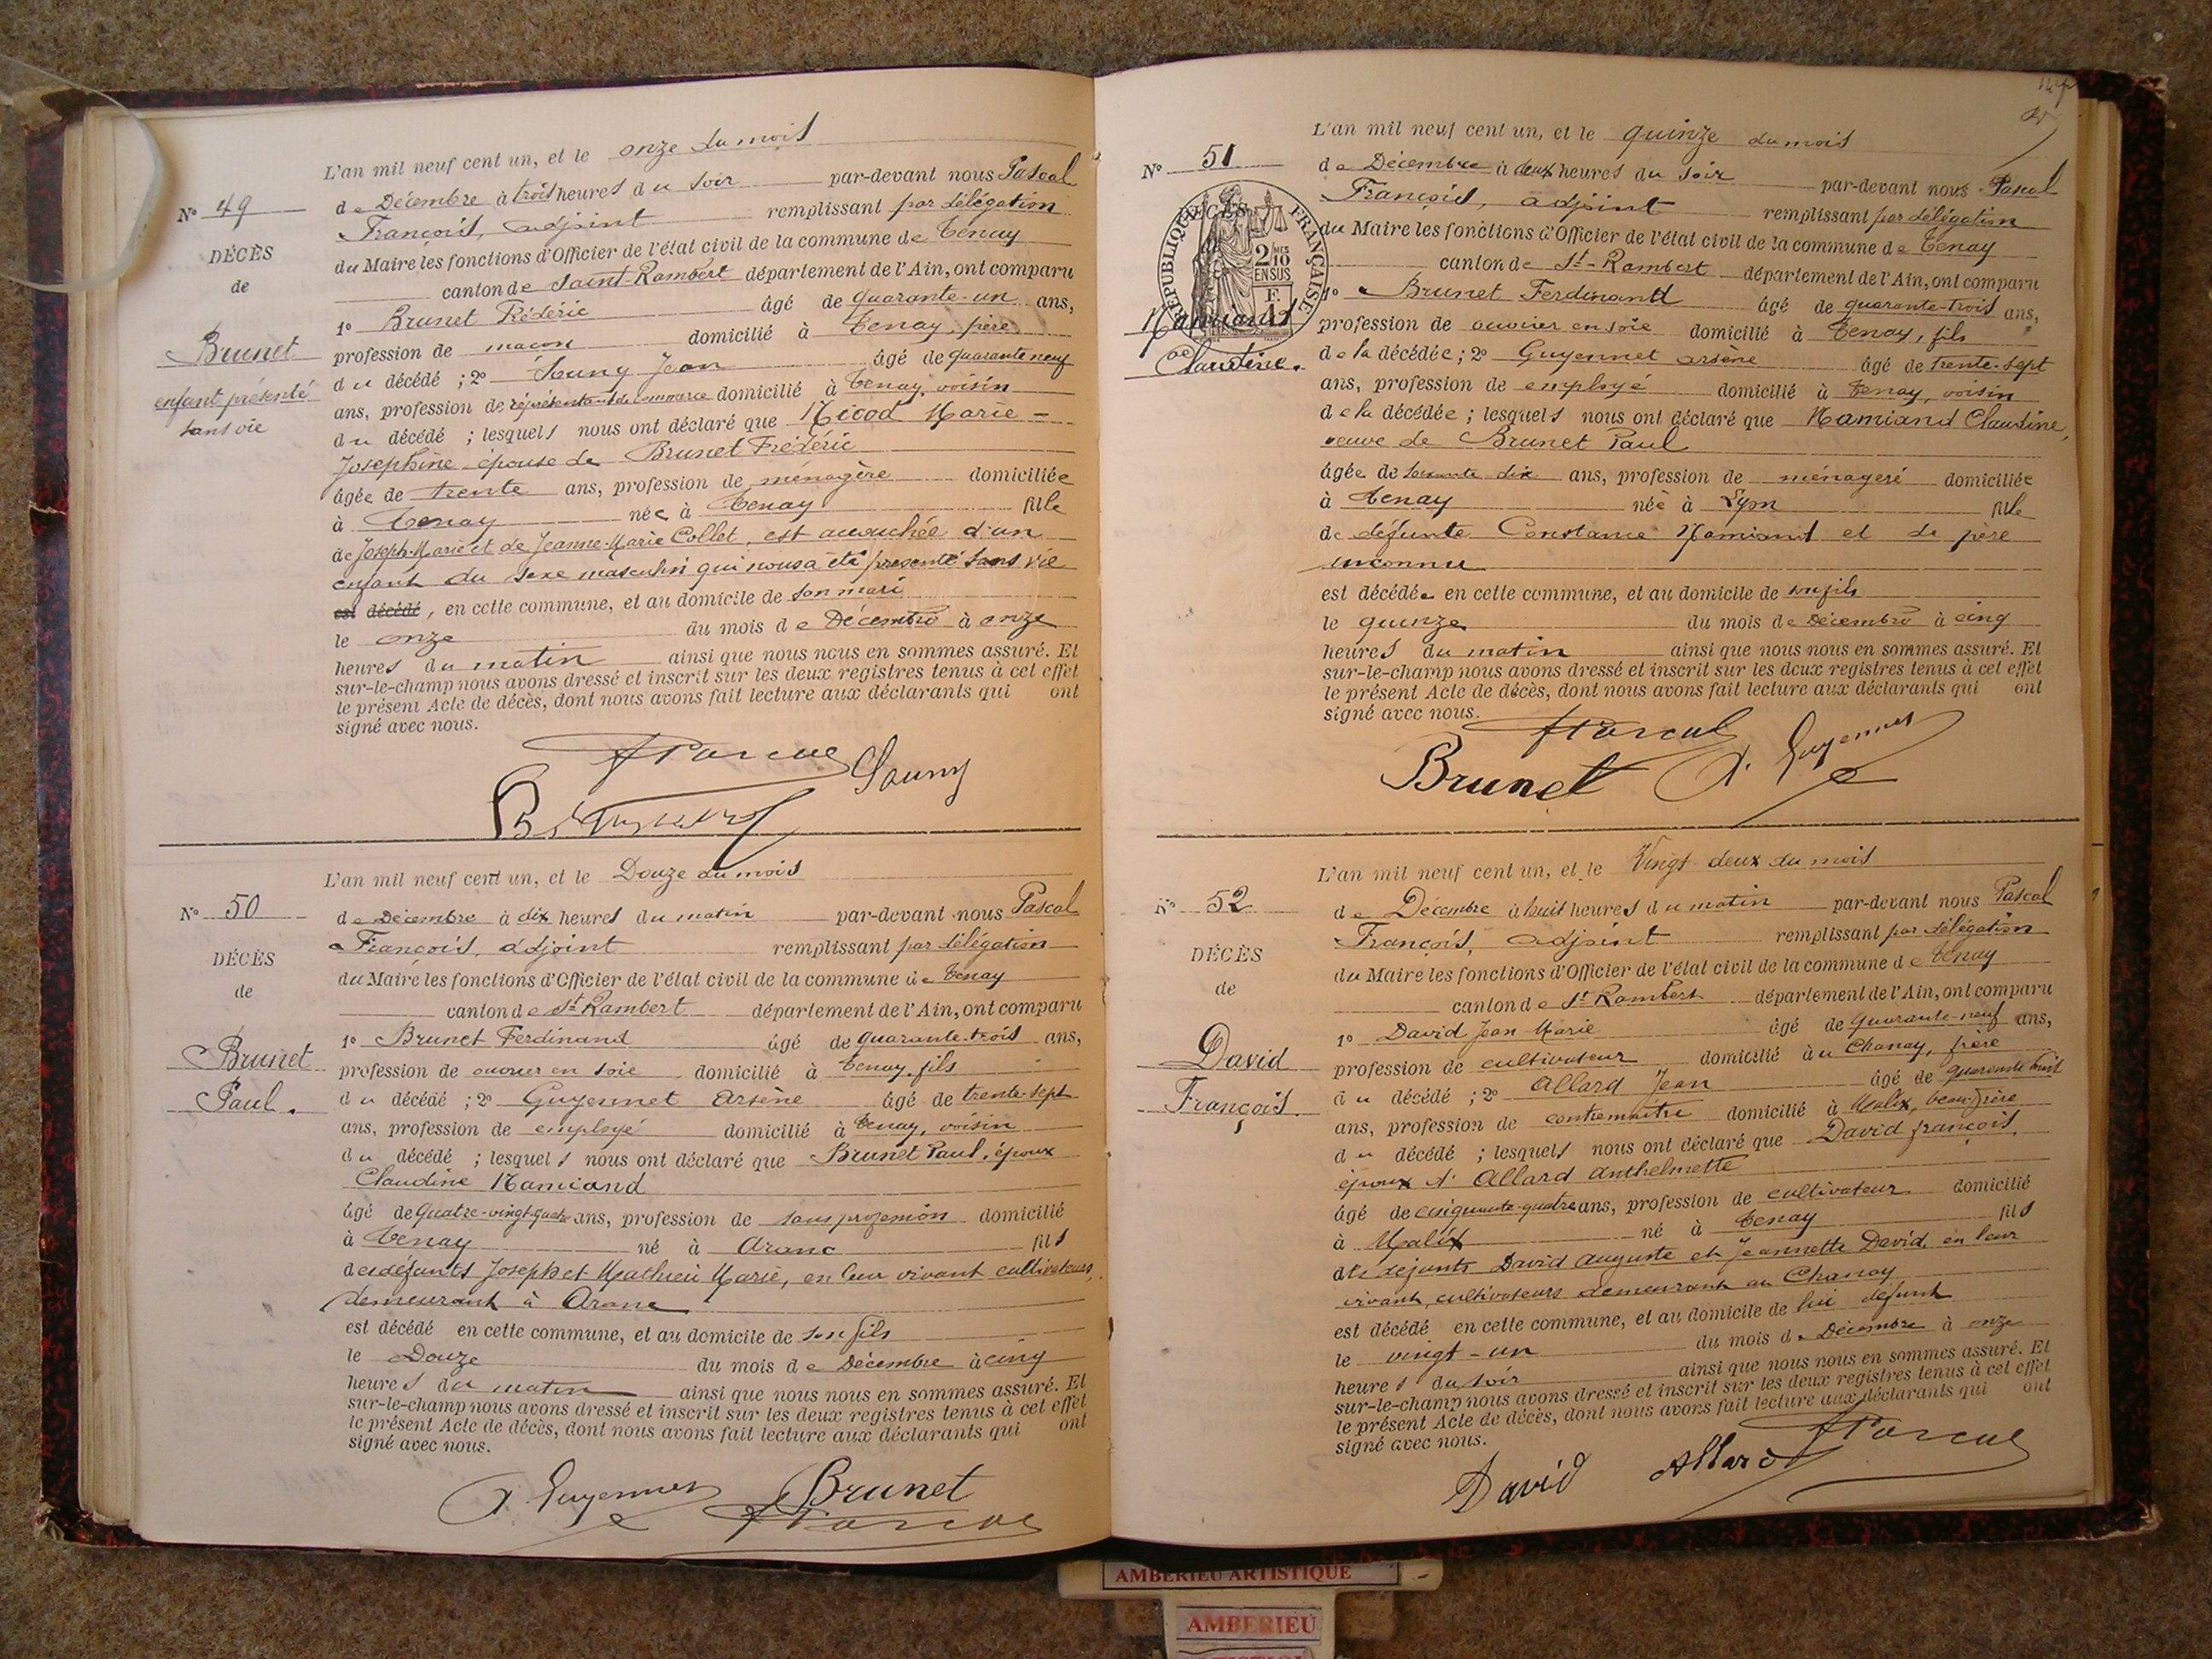 L'an mil neuf cent un, et le onze du mois
de Décembre à trois heures du soir par-devant nous Pascal
François, adjoint remplissant par délégation
du Maire les fonctions d'Officier de l'état civil de la commune de Tenay
canton de Saint-Rambert département de l'Ain, ont comparu
1º Brunet Frédéric âgé de quarante-un ans,
profession de maçon domicilié à Tenay, père
du décédé ; 2º Sauny Jean âgé de quarante neuf
ans, profession de représentant de commerce domicilié à Tenay, voisin
du décédé ; lesquels nous ont déclaré que Nicod Marie-
Josephine épouse de Brunet Frédéric
âgée de trente ans, profession de ménagère domiciliée
à Tenay née à Tenay fille
de Joseph-Marie et de Jeanne-Marie Collet, est accouchée d'un
enfant du sexe masculin qui nous a été présenté sans vie
est décédé, en cette commune, et au domicile de son mari
le onze du mois de Décembre à onze
heures du matin ainsi que nous nous en sommes assuré. Et
sur-le-champ nous avons dressé et inscrit sur les deux registres tenus à cet effet
le présent Acte de décès, dont nous avons fait lecture aux déclarants qui ont
signé avec nous.
Nº 49
DÉCÈS
de
Brunet
enfant présenté
sans vie
Pascal
Sauny
L'an mil neuf cent un, et le Douze du mois
de Décembre à dix heures du matin par-devant nous Pascal
François, adjoint remplissant par délégation
du Maire les fonctions d'Officier de l'état civil de la commune de Tenay
canton de St Rambert département de l'Ain, ont comparu
1º Brunet Ferdinand âgé de quarante-trois ans,
profession de ouvrier en soie domicilié à Tenay, fils
du décédé ; 2º Guyennet Arsène âgé de trente-sept
ans, profession de employé domicilié à Tenay, voisin
du décédé ; lesquels nous ont déclaré que Brunet Paul, époux
Claudine Namiand
âgé de quatre-vingt-quatre ans, profession de sans profession domicilié
à Tenay né à Aranc fils
des défunts Joseph et Mathieu Marie, en leur vivant cultivateurs,
demeurant à Aranc
est décédé en cette commune, et au domicile de son fils
le Douze du mois de Décembre à cinq
heures du matin ainsi que nous nous en sommes assuré. Et
sur-le-champ nous avons dressé et inscrit sur les deux registres tenus à cet effet
le présent Acte de décès, dont nous avons fait lecture aux déclarants qui ont
signé avec nous.
Nº 50
DÉCÈS
de
Brunet
Paul.
A. Guyennet Brunet
Pascal
L'an mil neuf cent un, et le quinze du mois
de Décembre à deux heures du soir par-devant nous Pascal
François, adjoint remplissant par délégation
du Maire les fonctions d'Officier de l'état civil de la commune de Tenay
canton de St-Rambert département de l'Ain, ont comparu
1º Brunet Ferdinand âgé de quarante-trois ans,
profession de ouvrier en soie domicilié à Tenay, fils
de la décédée ; 2º Guyennet Arsène âgé de trente-sept
ans, profession de employé domicilié à Tenay, voisin
de la décédée ; lesquels nous ont déclaré que Namiand Claudine,
veuve de Brunet Paul
âgée de soixante dix ans, profession de ménagère domiciliée
à Tenay née à Lyon fille
de défunte Constance Namiand et de père
inconnu
est décédée en cette commune, et au domicile de son fils
le quinze du mois de Décembre à cinq
heures du matin ainsi que nous nous en sommes assuré. Et
sur-le-champ nous avons dressé et inscrit sur les deux registres tenus à cet effet
le présent Acte de décès, dont nous avons fait lecture aux déclarants qui ont
signé avec nous.
Nº 51
DÉCÈS
RÉPUBLIQUE FRANÇAISE
2 MES
10
EN SUS
F.
Namiand
Claudine.
Pascal
Brunet A. Guyennet
L'an mil neuf cent un, et le Vingt-deux du mois
de Décembre à huit heures du matin par-devant nous Pascal
François, adjoint remplissant par délégation
du Maire les fonctions d'Officier de l'état civil de la commune de Tenay
canton de St Rambert département de l'Ain, ont comparu
1º David Jean Marie âgé de quarante-neuf ans,
profession de cultivateur domicilié au Chanay, frère
du décédé ; 2º Allard Jean âgé de quarante huit
ans, profession de contremaître domicilié à Malix, beau-frère
du décédé ; lesquels nous ont déclaré que David François,
époux d'Allard Anthelmette
âgé de cinquante-quatre ans, profession de cultivateur domicilié
à Malix né à Tenay fils
des défunts David Auguste et Jeannette David, en leur
vivant, cultivateurs demeurant au Chanay
est décédé en cette commune, et au domicile de lui défunt
le vingt-un du mois de Décembre à onze
heures du soir ainsi que nous nous en sommes assuré. Et
sur-le-champ nous avons dressé et inscrit sur les deux registres tenus à cet effet
le présent Acte de décès, dont nous avons fait lecture aux déclarants qui ont
signé avec nous.
Nº 52
DÉCÈS
de
David
François.
Pascal
David Allard
AMBERIEU ARTISTIQUE
AMBERIEU